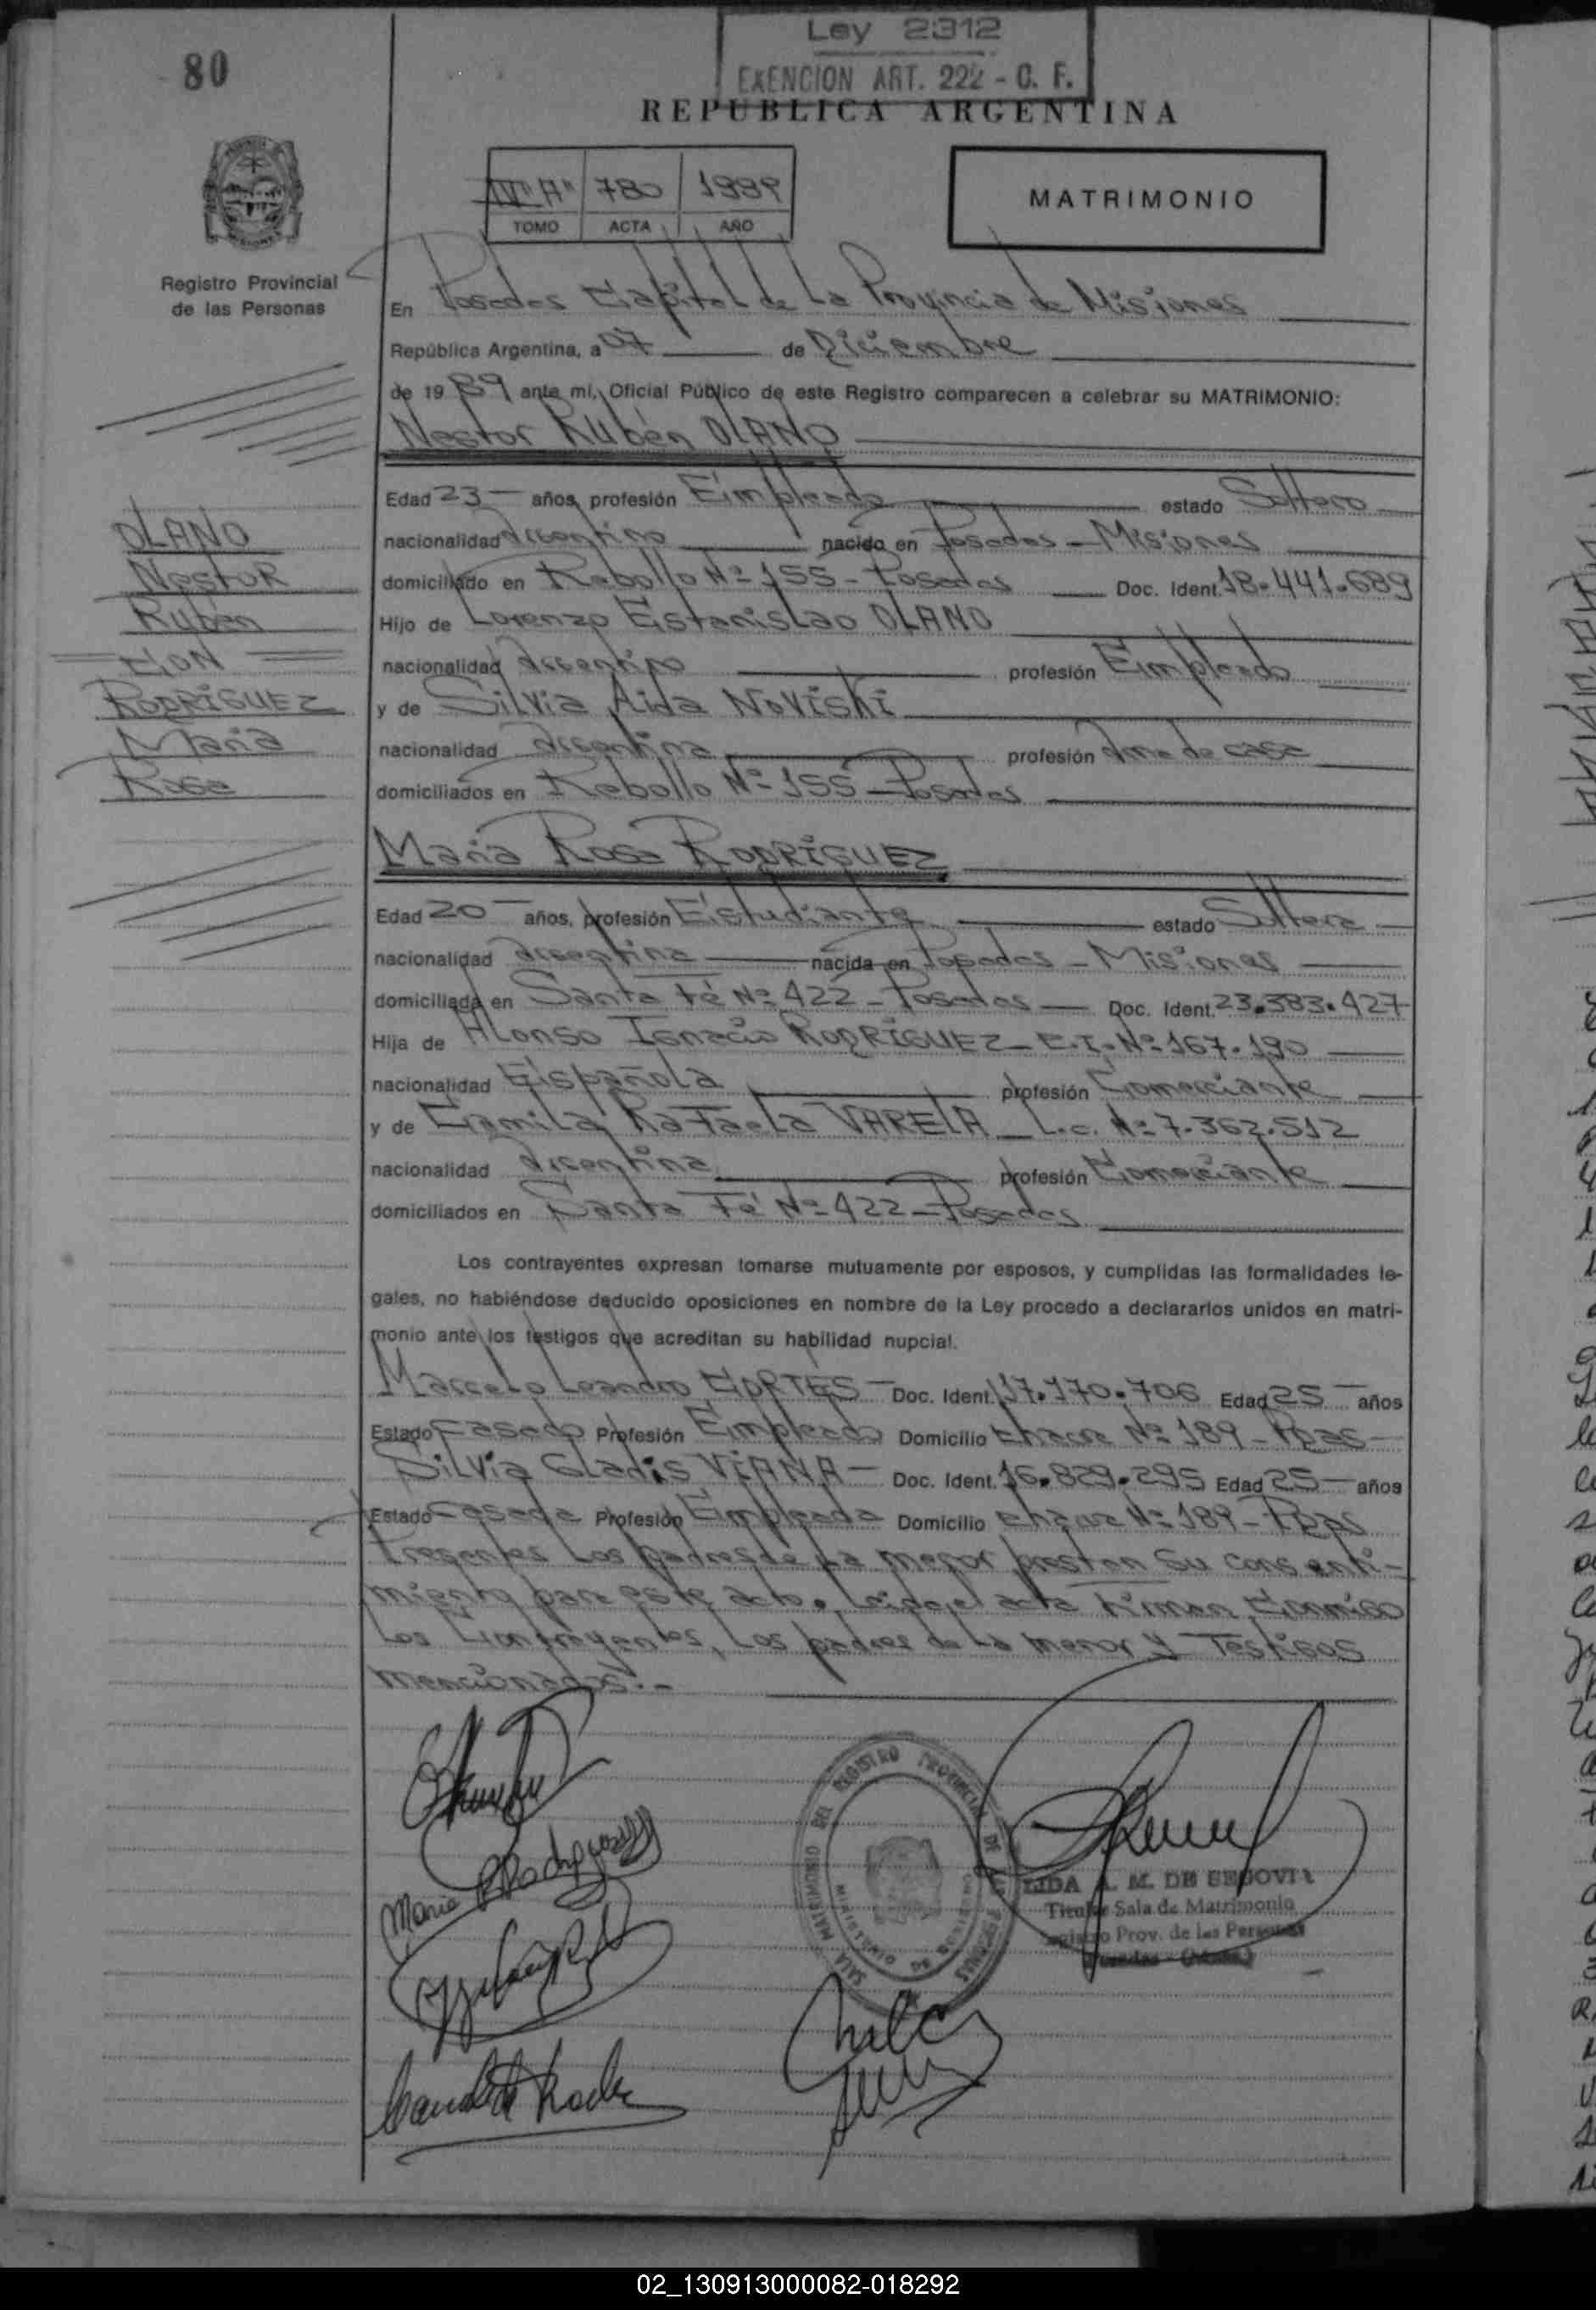 80
Ley 2312
EXENCION ART. 222 - C. F.
REPUBLICA ARGENTINA
IV "A" 780 1989
TOMO ACTA AÑO
MATRIMONIO
Registro Provincial
de las Personas
En Posadas Capital de La Provincia de Misiones
República Argentina, a 07 de Diciembre
de 1989 ante mí, Oficial Público de este Registro comparecen a celebrar su MATRIMONIO:
Nestor Rubén OLANO
OLANO
Nestor
Rubén
CON
RODRÍGUEZ
María
Rosa
Edad 23 años, profesión Empleado estado Soltero
nacionalidad Argentino nacido en Posadas - Misiones
domiciliado en Rebollo Nº 155 - Posadas Doc. Ident. 18.441.689
Hijo de Lorenzo Estanislao OLANO
nacionalidad Argentino profesión Empleado
y de Silvia Aida Noviski
nacionalidad Argentina profesión Ama de casa
domiciliados en Rebollo Nº 155 - Posadas
María Rosa RODRÍGUEZ
Edad 20 años, profesión Estudiante estado Soltera
nacionalidad Argentina nacida en Posadas - Misiones
domiciliada en Santa Fé Nº 422 - Posadas Doc. Ident. 23.383.427
Hija de Alonso Ignacio RODRÍGUEZ - C.I. Nº 167.190
nacionalidad Española profesión Comerciante
y de Camila Rafaela VARELA - L.c. Nº 7.362.512
nacionalidad Argentina profesión Comerciante
domiciliados en Santa Fé Nº 422 - Posadas
Los contrayentes expresan tomarse mutuamente por esposos, y cumplidas las formalidades le-
gales, no habiéndose deducido oposiciones en nombre de la Ley procedo a declararlos unidos en matri-
monio ante los testigos que acreditan su habilidad nupcial.
Marcelo Leandro CORTES - Doc. Ident. 17.170.706 Edad 25 años
Estado Casado Profesión Empleado Domicilio Chacra Nº 189 - Pdas
Silvia Gladis VIANA - Doc. Ident. 16.829.295 Edad 25 años
Estado Casada Profesión Empleada Domicilio Chacra Nº 189 - Pdas
Presentes Los padres de La menor prestan su consenti-
miento para este acto. Leída el acta Firman Conmigo
Los Contrayentes, Los padres de La menor y Testigos
mencionados.-
Maria R Rodriguez
SALA MATRIMONIO DEL REGISTRO PROVINCIAL DE LAS PERSONAS
LIDA A. M. DE SEGOVIA
Titular Sala de Matrimonio
Registro Prov. de las Personas
02_130913000082-018292